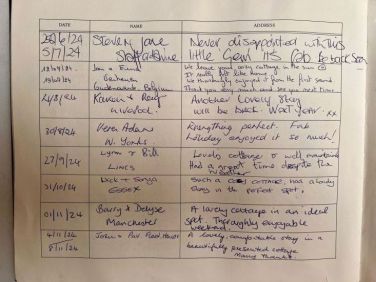 DATE NAME ADDRESS
28/6/24 Steven, Jane Never disappointed with this
5/7/24 Staffordshire little gem its Fab Be back Soon
We leave your cosy cottage in the sun
Jan + It really felt like home
We thoroughly enjoyed it from the first second
Belgium Thank you very much and see you next time
24/8/24 Karen + Reg Another lovely stay
Liverpool. will be back next year. xx
30/8/24 Vera Adam Everything perfect. Fab
N. Yorks holiday enjoyed it so much!
27/9/24 Lynn + Bill Lovely cottage + well maintained
LINCS Had a great time despite the
weather
31/10/24 Sonya Such a cosy cottage, had a lovely
ESSEX stay in the perfect spot.
01/11/24 Barry + Delyse A lovely cottage in an ideal
Manchester spot. Thoroughly enjoyable
weekend
4/11/24 John + A lovely, comfortable stay in a
8/11/24 beautifully presented cottage
Many Thanks